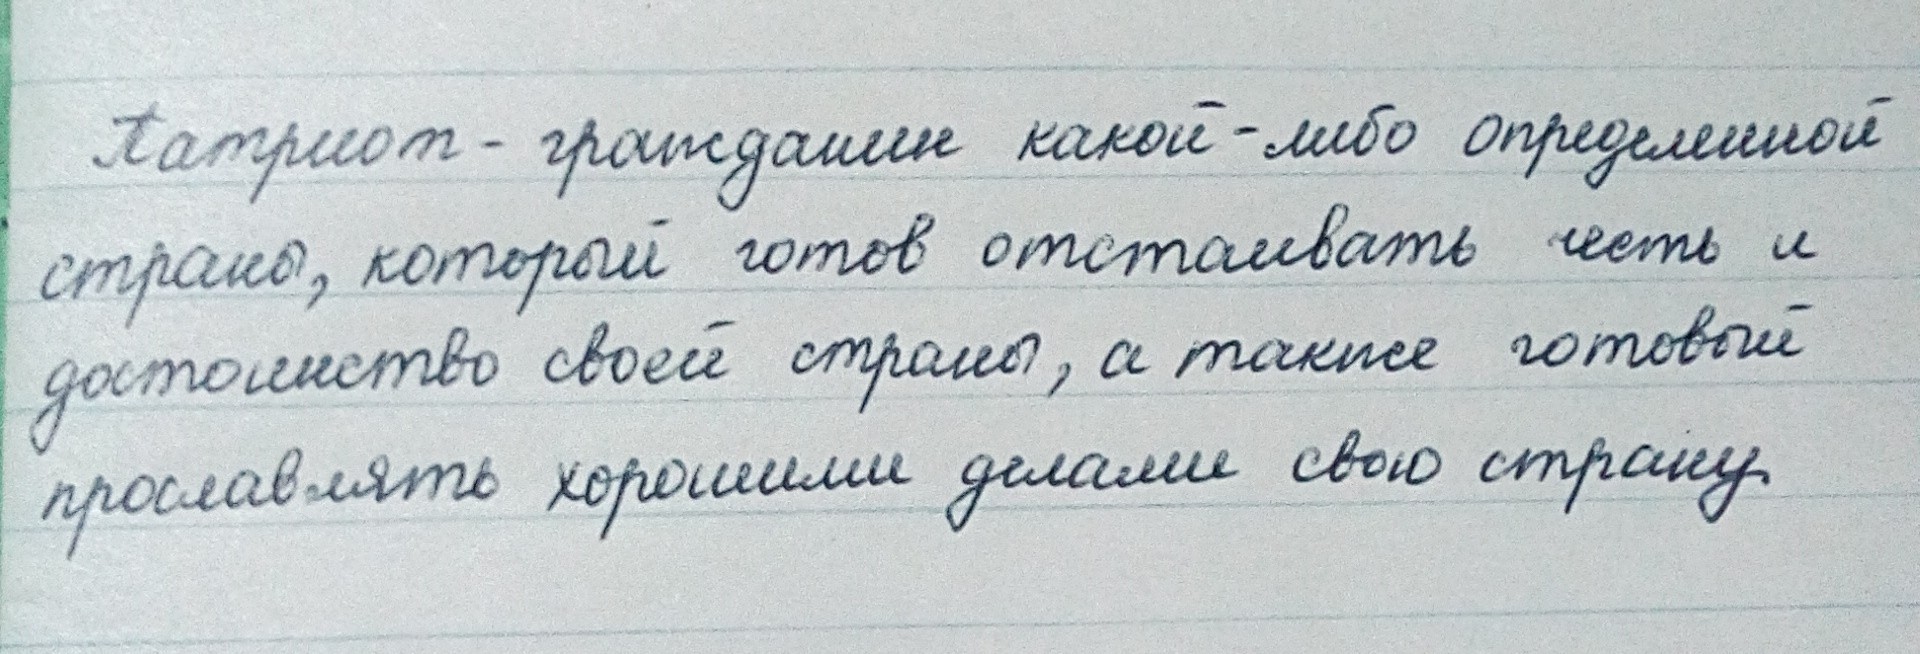 Патриот - гражданин какой-либо определенной
страны, который готов отстаивать честь и
достоинство своей страны, а также готовый
прославлять хорошими делами свою страну.